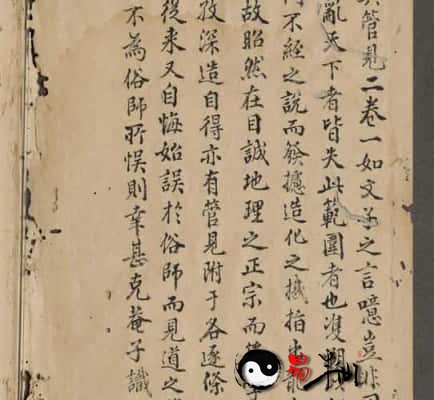 管見二卷一如文子之言噫豈非
亂天下者皆失此範圍者也
不經之說而發攄造化之機指
故昭然在目誠地理之正宗而
孜深造自得亦有管見附于各逐條
從来又自悔始誤於俗師而見道之
不為俗師所悮則幸甚克菴子識
易